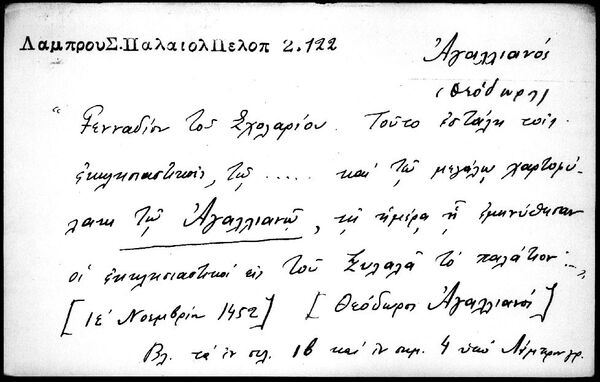 ΛαμπρουΣ.ΠαλαιολΠελοπ 2.122
Ἀγαλλιανός
(Θεόδωρος)
"Γενναδίου τοῦ Σχολαρίου. Τοῦτο ἐστάλη τοῖς
ἐκκλησιαστικοῖς, τῷ ..... καὶ τῷ μεγάλῳ χαρτοφύ-
λακι τῷ Ἀγαλλιανῷ, τῇ ἡμέρᾳ ᾗ ἐμηνύθησαν
οἱ ἐκκλησιαστικοὶ εἰς τοῦ Ξυλαλᾶ τὸ παλάτιον..."
[ιε´ Νοεμβρίου 1452] [Θεόδωρος Ἀγαλλιανός]
Βλ. τὰ ἐν σελ. 18 καὶ ἐν σημ. 4 ὑπὸ